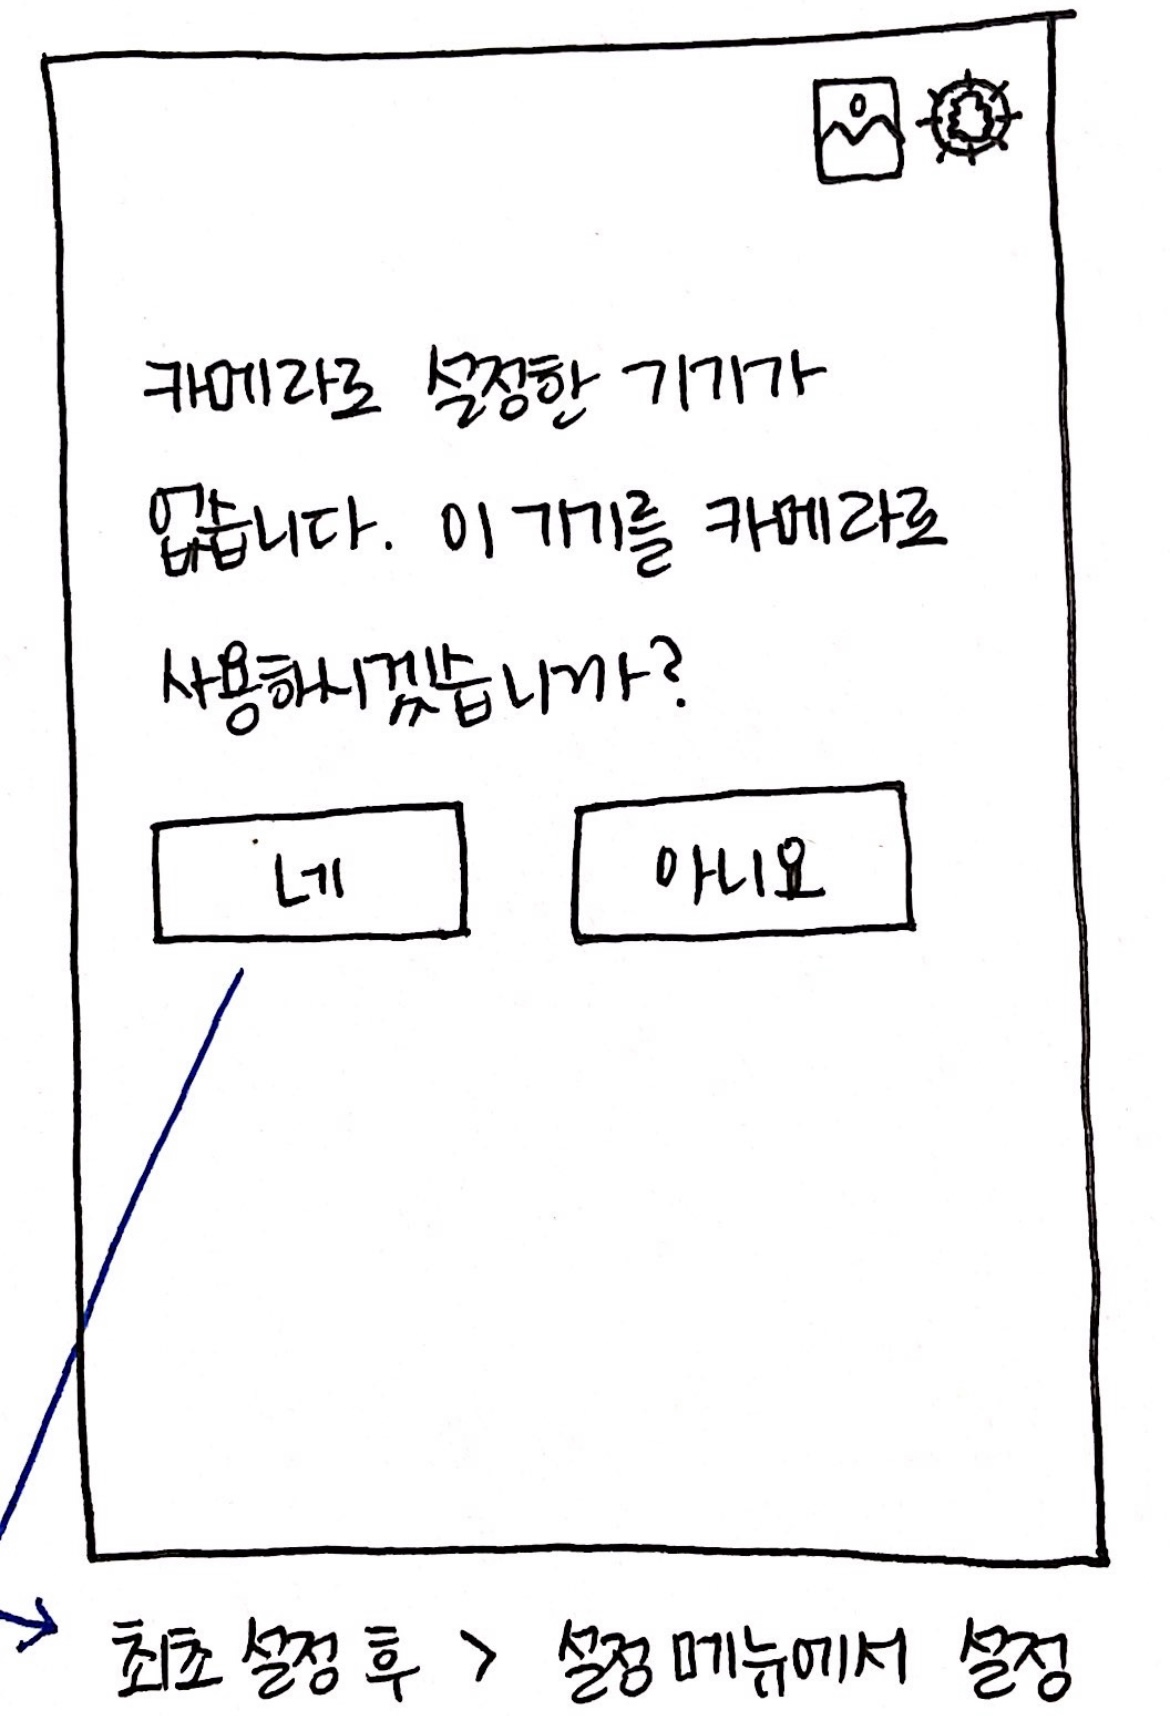 카메라로 설정한 기기가
없습니다. 이 기기를 카메라로
사용하시겠습니까?
네
아니요
최초 설정 후 > 설정 메뉴에서 설정